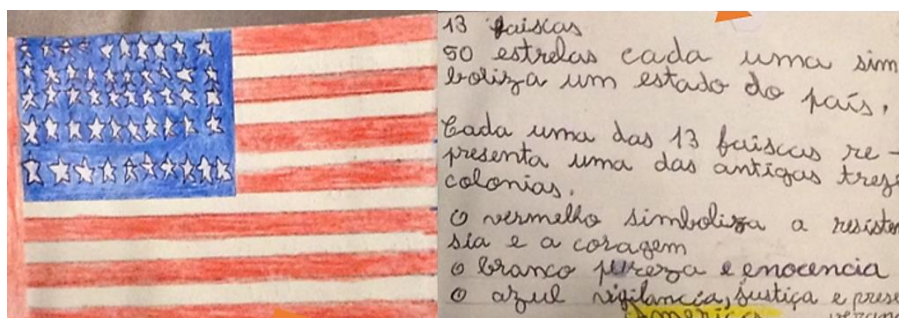 13 faiscas
50 estrelas cada uma sim
boliza um estado do país,
Cada uma das 13 faiscas re-
presenta uma das antigas treze
colonias.
O vermelho simboliza a resisten
sia e a coragem
O branco pureza e enocencia
O azul vigilancia, justiça e prese